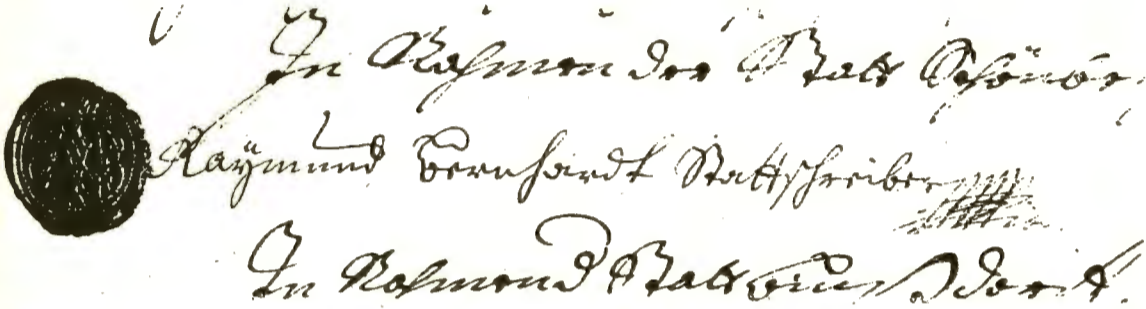 In Nahmen der Statt Schönbe
Raÿmund Bernhardt Stattschreiber
In Nahmen d Statt